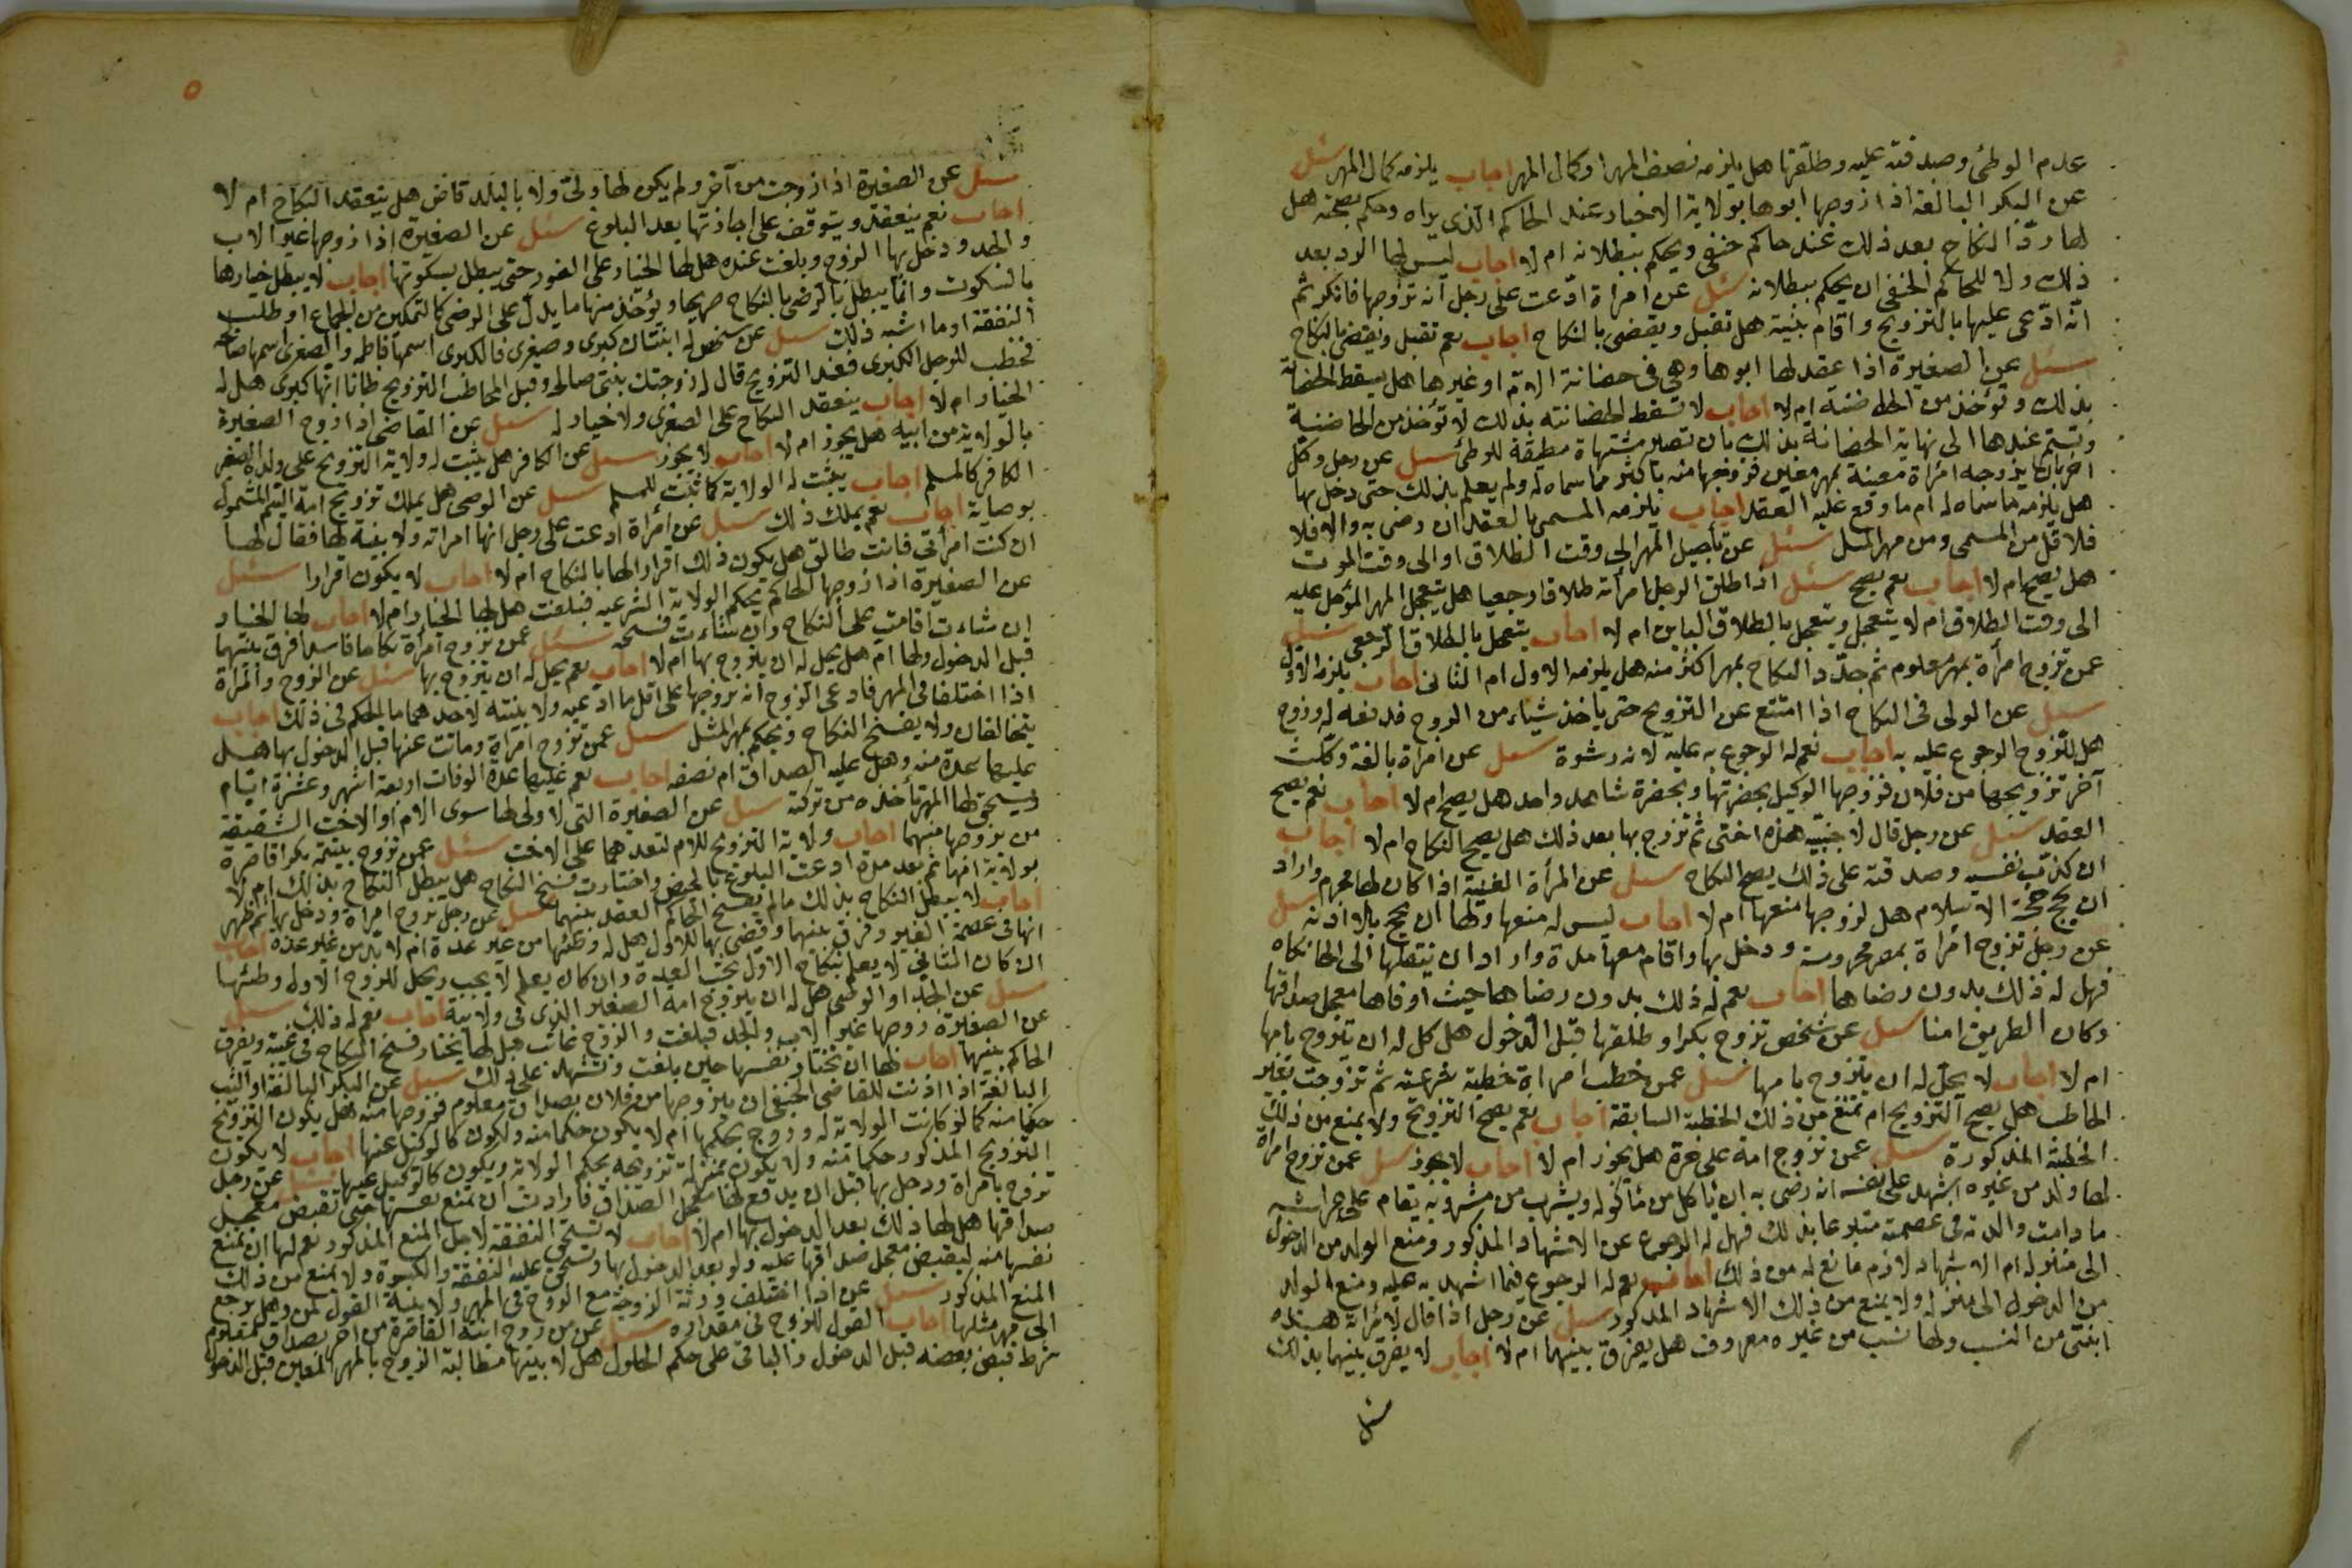 عدم الوطئ وصدقته عليه وطلقها هل يلزمه نصف المهر او كمال المهر اجاب يلزمه كمال المهر سئل
عن البكر البالغة اذا زوجها ابوها بولاية الاجبار عند الحاكم الذى يراه وحكم بصحته هل
لها ردّ النكاح بعد ذلك عند حاكم حنفى ويحكم ببطلانه ام لا اجاب ليس لها الرد بعد
ذلك ولا للحاكم الحنفى ان يحكم ببطلانه سئل عن امراة ادّعت على رجل انه تزوجها فانكر ثم
انه ادّعى عليها بالتزويج واقام بينة هل تقبل ويقضى بالنكاح اجاب نعم تقبل ويقضى بالنكاح
سئل عن الصغيرة اذا عقد لها ابوها وهى فى حضانة الام او غيرها هل يسقط الحضانة
بذلك وتؤخذ من الحاضنة ام لا اجاب لا تسقط الحضانة بذلك لا تؤخذ من الحاضنة
وتستمر عندها الى نهاية الحضانة بذلك بان تصير مشتهاة مطيقة للوطئ سئل عن رجل وكل
اخر بان يزوجه امراة معينة بمهر معين فزوجها منه باكثر مما سماه له ولم يعلم بذلك حتى دخل بها
هل يلزمه ما سماه له ام ما وقع عليه العقد اجاب يلزمه المسمى بالعقد ان رضى به والا فلا
فلاقل من المسمى ومن مهر المثل سئل عن تأجيل المهر الى وقت الطلاق او الى وقت الموت
هل يصح ام لا اجاب نعم يصح سئل اذا طلق الرجل امرأته طلاقا رجعيا هل يتعجل المهر المؤجل عليه
الى وقت الطلاق ام لا يتعجل ويتعجل بالطلاق الباين ام لا اجاب يتعجل بالطلاق الرجعى سئل
عمن تزوج امرأة بمهر معلوم ثم جدّد النكاح بمهر اكثر منه هل يلزمه الاول ام الثانى اجاب يلزمه الاول
سئل عن الولى فى النكاح اذا امتنع عن التزويج حتى ياخذ شياء من الزوج فدفعه له وزوج
هل للزوج الرجوع عليه به اجاب نعم له الرجوع به عليه لانه رشوة سئل عن امراة بالغة وكلت
آخر تزويجها من فلان فزوجها الوكيل بحضرتها وبحضرة شاهد واحد هل يصح ام لا اجاب نعم يصح
العقد سئل عن رجل قال لاجنبيه هذه اختى ثم تزوج بها بعد ذلك هل يصح النكاح ام لا اجاب
ان كذّب نفسه وصدقته على ذلك يصح النكاح سئل عن المرأة الغنية اذا كان لها محرم واراد
ان تحج حجة الاسلام هل لزوجها منعها ام لا اجاب ليس له منعها ولها ان تحج بلا اذنه سئل
عن رجل تزوج امراة بمصر محروسة ودخل بها واقام معها مدة واراد ان ينقلها الى الخانكاه
فهل له ذلك بدون رضاها اجاب نعم له ذلك بدون رضاها حيث اوفاها معجل صداقها
وكان الطريق امنا سئل عن شخص تزوج بكرا وطلقها قبل الدخول هل كل له ان يتزوج بامها
ام لا اجاب لا يحل له ان يتزوج بامها سئل عمن خطب امراة خطبة شرعية ثم تزوجت بغير
الخاطب هل يصح التزويج ام تمنع من ذلك الخطبة السابقة اجاب نعم يصح التزويج ولا يمنع من ذلك
الخطبة المذكورة سئل عمن تزوج امة على حرة هل يجوز ام لا اجاب لا يجوز سئل عمن تزوج امراة
لها ولد من غيره اشهد على نفسه انه رضى به ان ياكل من ماكوله ويشرب من مشروبه يقام على فراشه
ما دامت والدته فى عصمته متبرعا بذلك فهل له الرجوع عن الاشهاد المذكور ومنع الولد من الدخول
الى منزله ام الاشهاد لازم مانع له من ذلك اجاب نعم له الرجوع فيما اشهد به عليه ومنع الولد
من الدخول الى منزله ولا يمنع من ذلك الاشهاد المذكور سئل عن رجل اذا قال لامرأة هذه
ابنتى من النسب ولها نسب من غيره معروف هل يفرق بينهما ام لا اجاب لا يفرق بينهما بذلك
سئل
٥
سئل عن الصغيرة اذا زوجت من آخر ولم يكن لها ولى ولا بالبلد قاض هل ينعقد النكاح ام لا
اجاب نعم ينعقد ويتوقف على اجازتها بعد البلوغ سئل عن الصغيرة اذا زوجها غير الاب
والجد ودخل بها الزوج وبلغت عنده هل لها الخيار على الفور حتى يبطل بسكوتها اجاب لا يبطل خيارها
بالسكوت وانما يبطل بالرضى بالنكاح صريحا ويؤخذ منها ما يدل على الرضى كالتمكين من الجماع او طلب
النفقة او ما اشبه ذلك سئل عن شخص له ابنتان كبرى وصغرى فالكبرى اسمها فاطمه والصغرى اسمها صالحه
فخطب للرجل الكبرى فعند التزويج قال له زوجتك بنتى صالحه وقبل المخاطب التزويج ظانا انها كبرى هل له
الخيار ام لا اجاب ينعقد النكاح على الصغرى ولا خيار له سئل عن القاضى اذا زوج الصغيرة
بالولاية من ابنه هل يجوز ام لا اجاب لا يجوز سئل عن الكافر هل يثبت له ولاية التزويج على ولده الصغير
الكافر كالمسلم اجاب يثبت له الولاية كما تثبت للمسلم سئل عن الوصى هل يملك تزويج امة اليتيم المشمول
بوصاية اجاب نعم يملك ذلك سئل عن امرأة ادعت على رجل انها امراته ولا بينة لها فقال لها
ان كنت امرأتى فانت طالق هل يكون ذلك اقرارا لها بالنكاح ام لا اجاب لا يكون اقرارا سئل
عن الصغيرة اذا زوجها الحاكم بحكم الولاية الشرعيه فبلغت هل لها الخيار ام لا اجاب لها الخيار
ان شاءت اقامت على النكاح وان شاءت فسخه سئل عمن تزوج امرأة نكاحا فاسدا فرق بينهما
قبل الدخول ولها ام هل يحل له ان يتزوج بها ام لا اجاب نعم يحل له ان يتزوج بها سئل عن الزوج والمراة
اذا اختلفا فى المهر فادعى الزوج انه تزوجها على اقل ما ادعته ولا بينة لاحدهما ما الحكم فى ذلك اجاب
يتحالفان ولا يفسخ النكاح ويحكم بمهر المثل سئل عمن تزوج امرأة ومات عنها قبل الدخول بها هل
عليها عدة منه وهل عليه الصداق ام نصفه اجاب نعم عليها عدة الوفات اربعة اشهر وعشرة ايام
ويستحق لها المهر تأخذه من تركته سئل عن الصغيرة التى لا ولى لها سوى الام او الاخت الشقيقة
من يزوجها منهما اجاب ولاية التزويج للام لتعدهما على الاخت سئل عمن تزوج بيتيمة بكرا قاصرة
بولاية امها ثم بعد مدة ادعت البلوغ بالحيض واختارت فسخ النكاح هل يبطل النكاح بذلك ام لا
اجاب لا يبطل النكاح بذلك مالم يفسخ الحاكم العقد بينهما سئل عن رجل تزوج امراة ودخل بها ثم ظهر
انها فى عصمة الغير وفرق بينهما وقضى بها للاول هل له وطئها من غير عدة ام لا بد من غير عده اجاب
ان كان الثانى لا يعلم نكاح الاول تجب العدة وان كان يعلم لا يجب ويحل للزوج الاول وطئها
سئل عن الجد او الوصى هل له ان يتزوج امة الصغير الذى فى ولايته اجاب نعم له ذلك سئل
عن الصغيرة زوجها غير الاب والجد فبلغت والزوج غائب هل لها تختار فسخ النكاح فى غيبته ويفرق
الحاكم بينهما اجاب لها ان تختار نفسها حين بلغت وتشهد على ذلك سئل عن البكر البالغة او الثيب
البالغة اذا اذنت للقاضى الحنفى ان يزوجها من فلان بصداق معلوم فزوجها منه هل يكون التزويج
حكما منه كما لو كانت الولاية له وزوج بحكمها ام لا يكون حكما منه ويكون كالوكيل عنها اجاب لا يكون
التزويج المذكور حكما منه ولا يكون بمنزلة تزويجه بحكم الولاية ويكون كالوكيل عنها سئل عن رجل
تزوج بامراة ودخل بها قبل ان يدفع لها معجل الصداق فارادت ان تمنع نفسها حتى تقبض معجل
صداقها هل لها ذلك بعد الدخول بها ام لا اجاب لا تستحق النفقة لاجل المنع المذكور نعم لها ان تمنع
نفسها منه ليقبض معجل صداقها عليه ولو بعد الدخول بها وتستحق عليه النفقة والكسوة ولا يمنع من ذلك
المنع المذكور سئل عن اذا اختلف ورثة الزوجة مع الزوج فى المهر ولا بينة القول لمن وهل يرجع
الى مهر مثلها اجاب القول للزوج فى مقداره سئل عن من زوج ابنته القاصرة من اخر بصداق معلوم
شرط قبض بعضه قبل الدخول والباقى على حكم الحلول هل لابيها مطالبة الزوج بالمهر المعين قبل الدخول